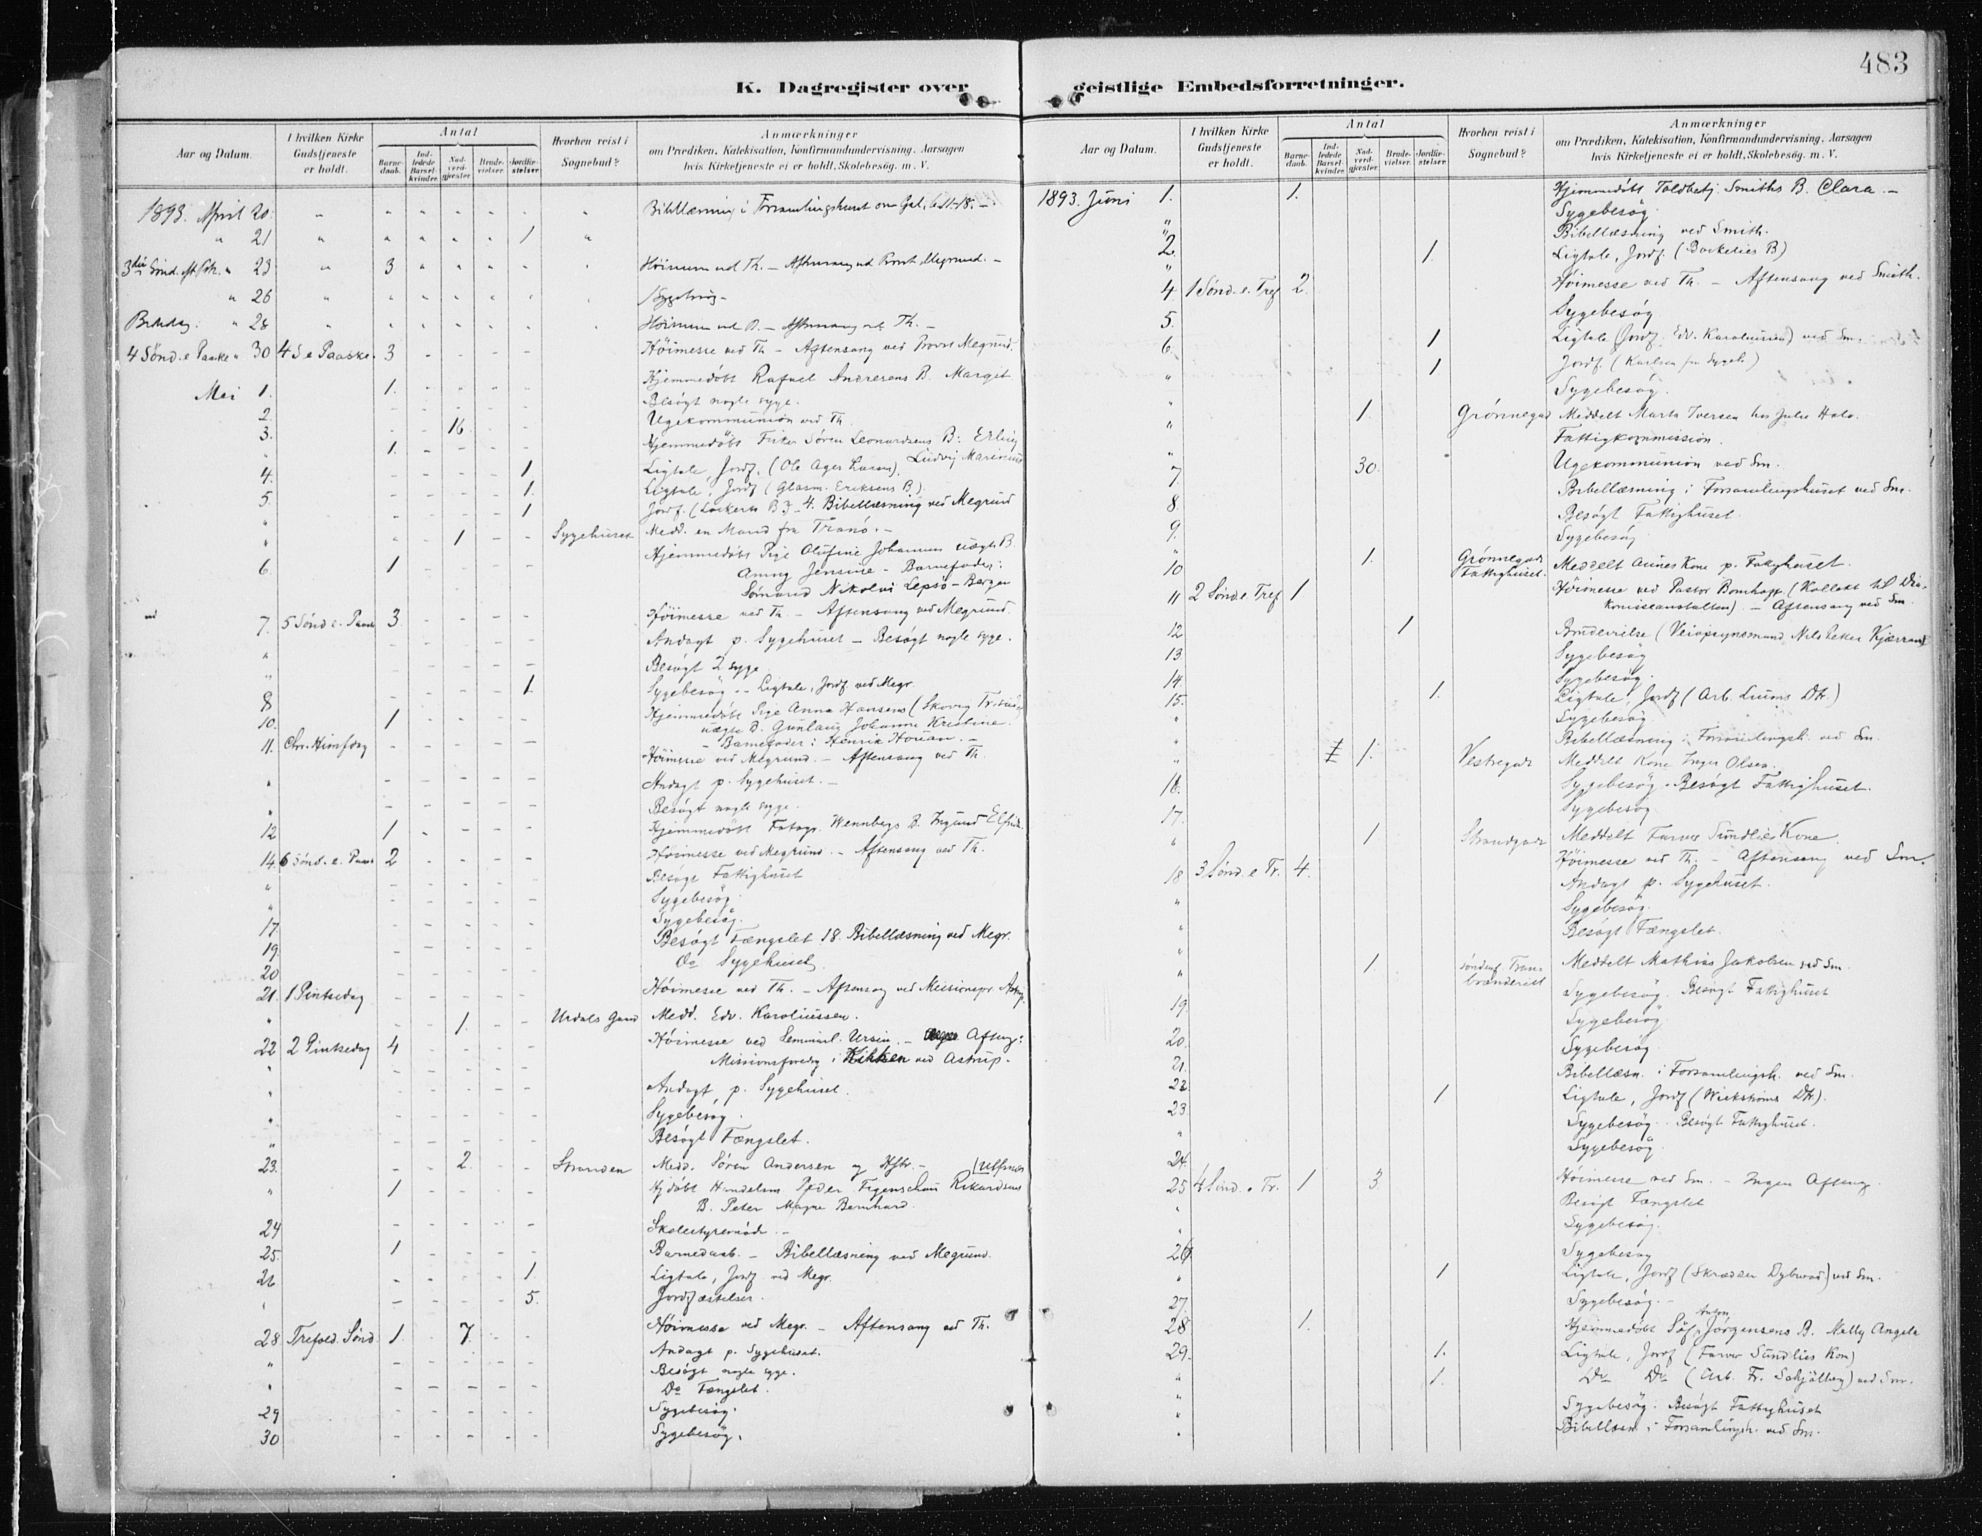 483
K. Dagregister over geistlige Embedsforretninger.
Aar og Datum.
I hvilken Kirke Gudstjeneste er holdt.
Antal
Barnedaab.
Indledede Barselkvinder.
Nadverdgjester.
Brudevielser.
Jordfæstelser
Hvorhen reist i Sognebud?
Anmærkninger
om Prædiken, Katekisation, Konfirmandundervisning. Aarsagen
hvis Kirketjeneste ei er holdt, Skolebesøg. m. V.
1893. April 20 Bibellæsning i Forsamlingshuset
" 21 1
" 23 3 Høimesse ved Th. – Aftensang ved
" 26 Sygebesøg
Bededag. " 28 Høimesse ved – Aftensang ved Th. –
4 Sønd. e. Paaske " 30 4 S e Paaske 3 Høimesse ved Th – Aftensang ved Provst Megrund.
Mai 1. 1. Hjemmedøbt Rafael Andresens B. Margit
Besøgt nogle syge.
2. 16 Ugekommunion ved Th.
3. 1. Hjemmedøbt Fisker Søren Leonardsens B: Erling
Ludvig Marinius
4. 1 Ligtale, Jordf. (Ole Ager Larsen)
5. 1. Ligtale, Jordf (Glasm. Eriksens B.)
" 1 Jordf. 4. Bibellæsning ved Megrund
" 1 Sygehuset Medd. en Mand fra Tranö. –
6. 1 Hjemmedøbt Pige Olufine Johannesen uægte B.
Jensine – Barnefader:
Sømand Nikolai Lepsö – Bergen
7. 5 Sønd e. Paaske 3 Høimesse ved Th – Aftensang ved Megrund.
" Andagt p. Sygehuset – Besøgt nogle syge.
" Besøgt 2 syge
8 1. Sygebesøg. – Ligtale, Jordf. ved Megr.
10. 1 Hjemmedøbt Pige Anna Hansens
uægte B. Gunlaug Johanne Kristine
– Barnefader: Henrik –
11. Chr. Himfdag Høimesse ved Megrund. – Aftensang ved Th.
" Andagt p. Sygehuset. –
" Besøgt nogle syge.
12 1 Hjemmedøbt Fotogr. Wennbergs B. Ingrid
14. 6 Sønd. e. Paask 2 Høimesse ved Megrund. – Aftensang ved Th.
" Besøgt Fattighuset
" Sygebesøg
17 Sygebesøg.
19. Besøgt Fængslet 18. Bibellæsning ved Megr.
20 Do Sygehuset.
21. 1 Pintsedag Høimesse ved Th. – Aftensang ved Missionspr.
" 1. Urdals Gaard Medd. Edv. Karoliussen.
22 2 Pintsedag 4 Høimesse ved Seminarl. Ursin. – Aftensg:
Missionsforedrag i Kirken ved Astrup.
" Andagt p. Sygehuset.
" Sygebesøg.
" Besøgt Fængslet.
23. 2. Stranden Medd. Søren Andersen og Hstr. –
" 1 Hjdøbt Handelsm Peder Figenschau Rikardsens
B. Peter Magne Bernhard.
24 Skolestyremöde –
25. 1 Barnedaab. – Bibellæsning ved Megrund.
26 1. Ligtale, Jordf ved Megr.
" 5. Jordfæstelser.
28 Trefold. Sønd. 1. 7. Høimesse ved Megr. – Aftensang ved Th.
" Andagt p. Sygehuset.
" Besøgt nogle syge.
" Do Fængslet.
29 Sygebesøg.
30 Sygebesøg.
Aar og Datum.
I hvilken Kirke Gudstjeneste er holdt.
Antal
Barnedaab.
Indledede Barselkvinder.
Nadverdgjester.
Brudevielser.
Jordfæstelser.
Hvorhen reist i Sognebud?
Anmærkninger
om Prædiken, Katekisation, Konfirmandundervisning. Aarsagen
hvis Kirketjeneste ei er holdt, Skolebesøg. m. V.
1893. Juni 1. 1. Hjemmedøbt Toldbetj. Smiths B. Clara. –
Sygebesøg
" Bibellæsning ved Smith.
2. 1. Ligtale, Jordf.
4 1 Sønd. e. Tref 2. Høimesse ved Th. – Aftensang ved Smith.
5. Sygebesøg
6. 1 Ligtale (Jordf. Edv. Karoliussen) ved Sm.
" 1 Jordf. (Karlsen fra Sygeh.)
" Sygebesøg.
" 1. Grönnegad Meddelt Marta Iversen hos Julie
" Fattigkommission.
7. 30. Ugekommunion ved Sm.
8. Bibellæsning i Forsamlingshuset ved Sm.
9. Besøgt Fattighuset.
" Sygebesøg
10 1. Grönnegad Fattighuset. Meddelt Kone p. Fattighuset.
11 2 Sønd e. Tref 1 Høimesse ved Pastor Bomhoff (Kollekt til Diakonisseanstalten). – Aftensang ved Sm.
12 1 Brudevielse (Veiopsynsmand Nils Kjærran)
13 Sygebesøg
14 Sygebesøg
15. 1. Ligtale, Jordf (Arb. Dtr.)
" Sygebesøg
" Bibellæsning i Forsamlingsh. ved Sm.
" 1. Vestregade Meddelt Kone Inger Olsen.
16. Sygebesøg. Besøgt Fattighuset.
17. Sygebesøg
" 1 Strandgade Meddelt Farver Sundlies Kone.
18 3 Sønd. e Tr. 4. Høimesse ved Th. – Aftensang ved Sm.
" Andagt p. Sygehuset.
" Sygebesøg.
" Besøgt Fængslet.
" 1 søndenf Tranbrænderiet Meddelt Mathias Jakobsen ved Sm.
19. Sygebesøg. Besøgt Fattighuset
20. Sygebesøg
21. Sygebesøg.
22 Bibellæsn. i Forsamlingsh. ved Sm.
23. 1 Ligtale, Jordf (Wickströms Dtr.).
" Sygebesøg. Besøgt Fattighuset.
24. Sygebesøg.
25 4 Sønd. e Tr. 1 3. Høimesse ved Sm. – Ingen Aftensg.
" Besøgt Fængslet
" Sygebesøg.
26 Sygebesøg
" 1 Ligtale, Jordf (Skrædder Dybwad) ved Sm.
27. Sygebesøg. –
28 1. Hjemmedøbt Anton Jörgensens B. Nelly Angela
29. 1. Ligtale, Jordf (Farver Sundlies Kon)
" 1. Do Do (Arb. Fr. Schjölberg) ved Sm.
" Sygebesøg. Besøgt Fattighuset
" Bibellæsn. i Forsamlingsh. ved Sm.